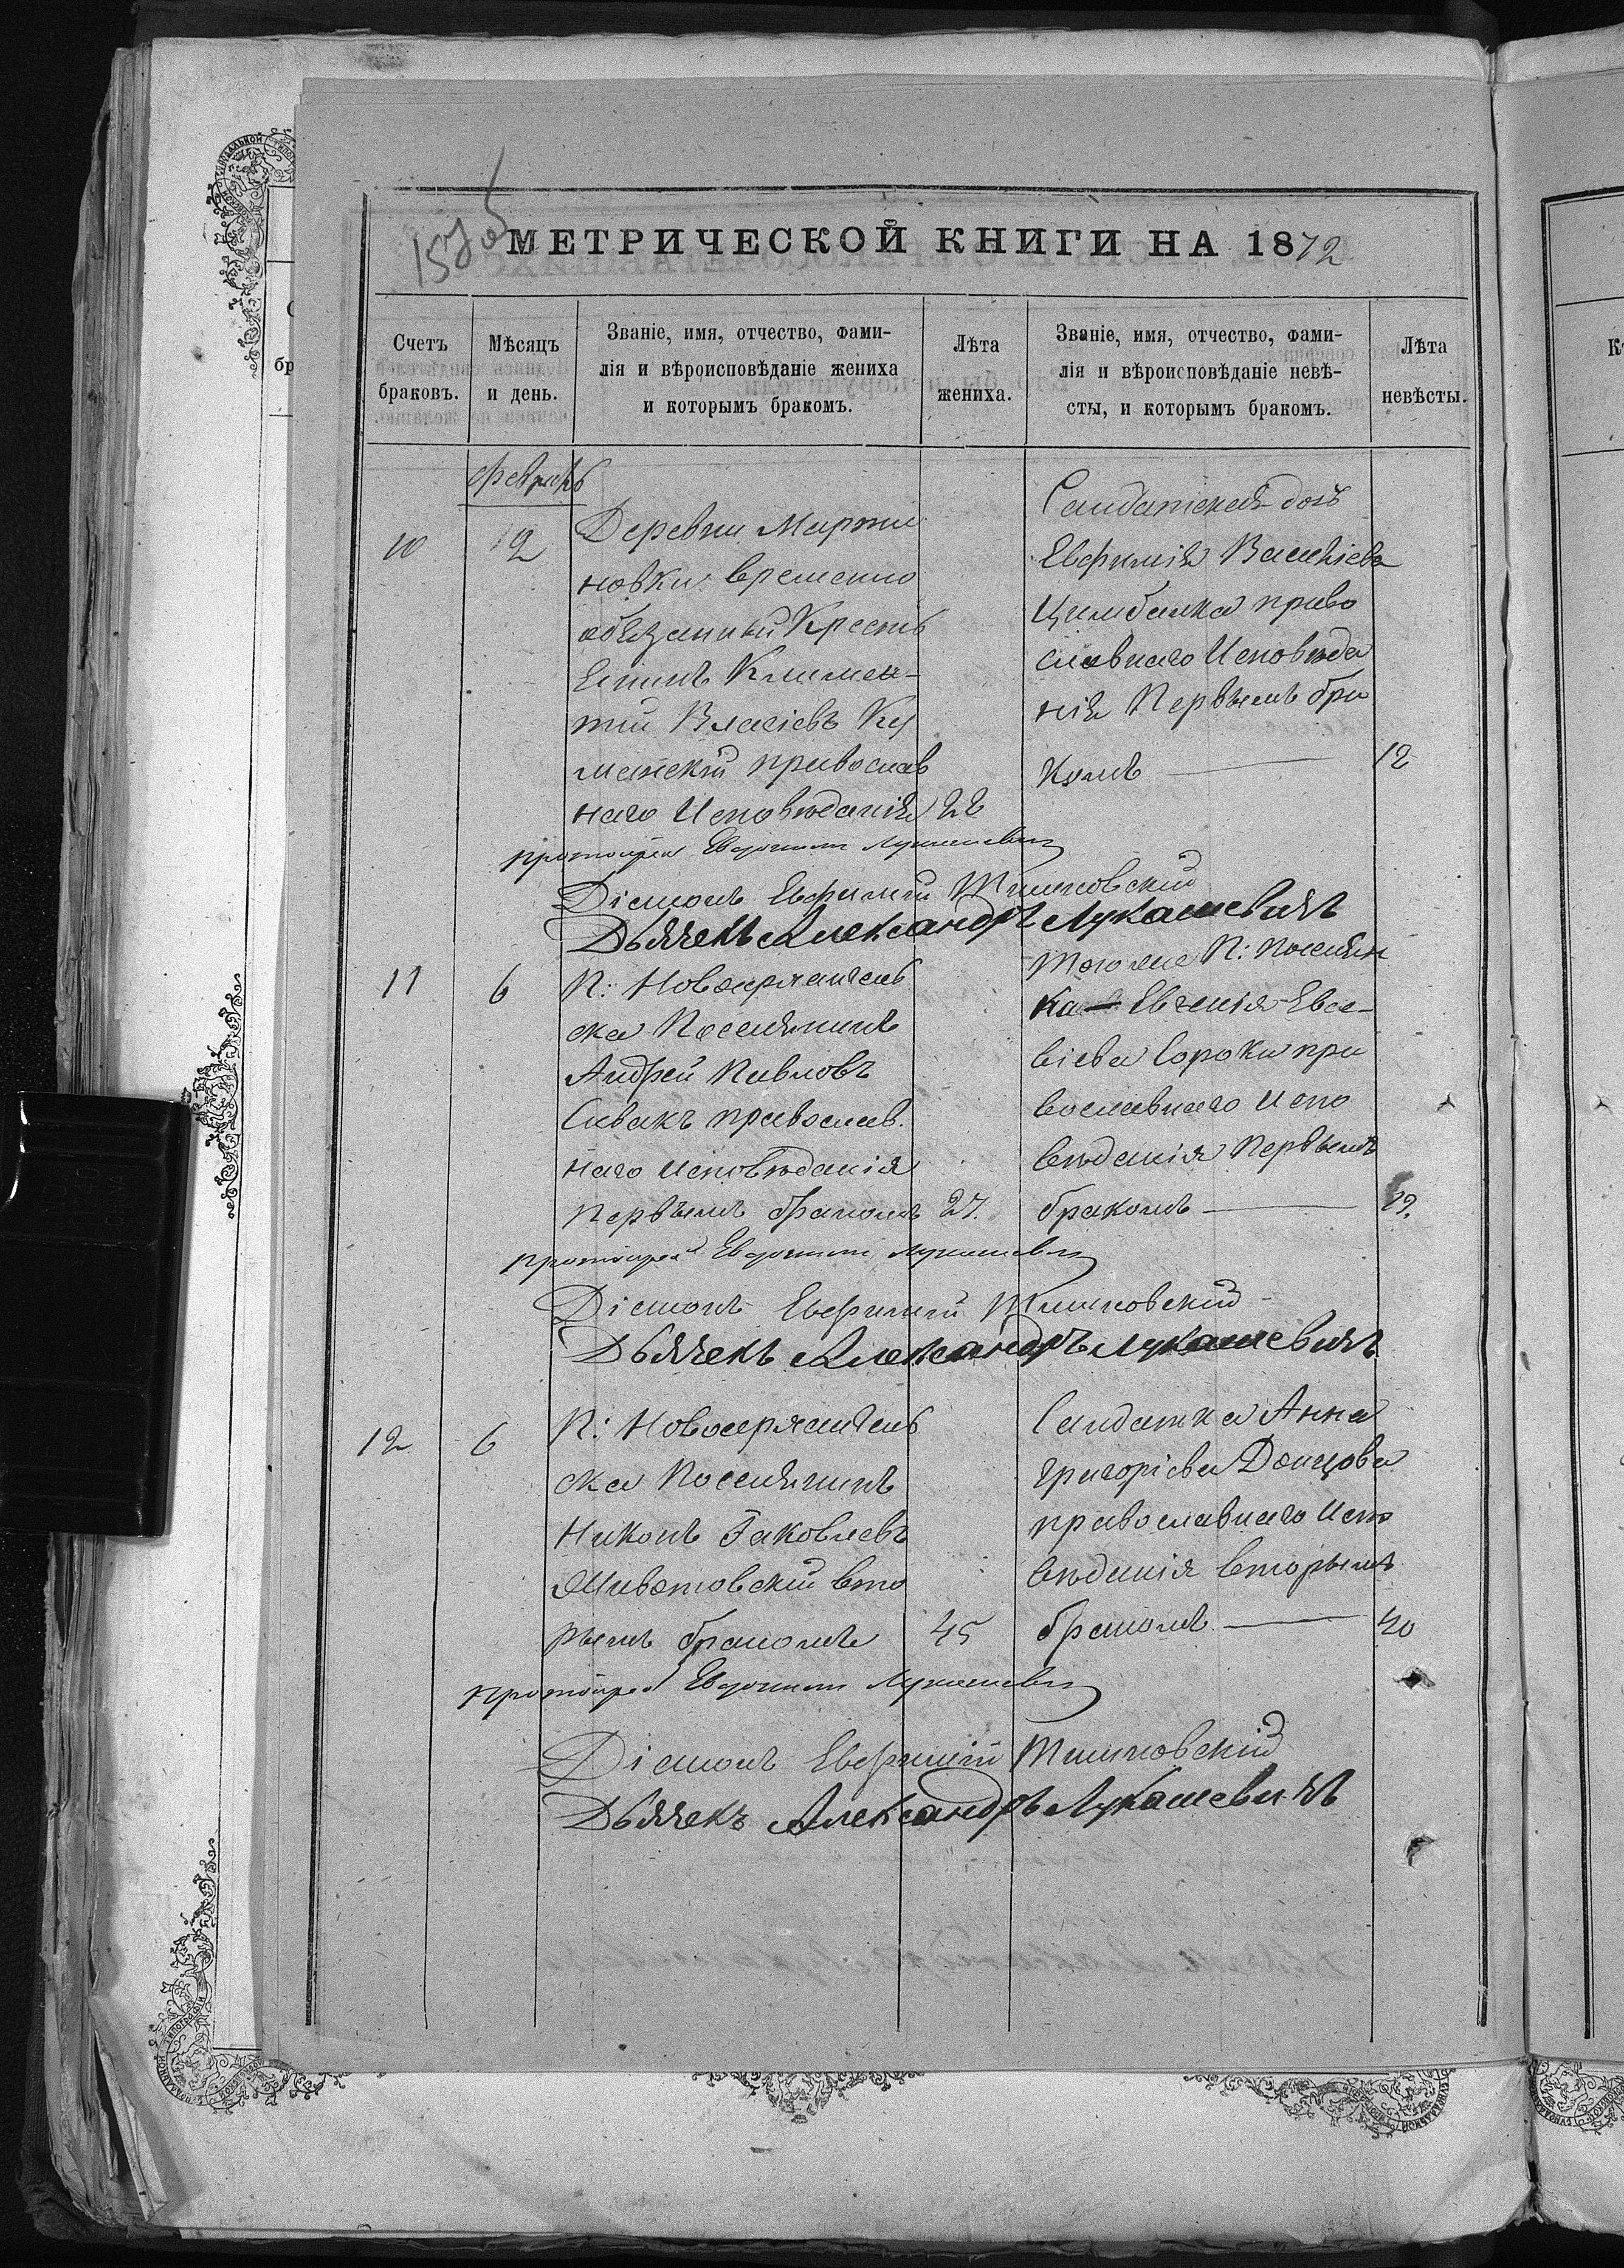 157об
МЕТРИЧЕСКОЙ КНИГИ НА 1872
Счетъ браковъ.
Мѣсяцъ и день.
Званіе, имя, отчество, фами-
лія и вѣроисповѣданіе жениха
и которымъ бракомъ.
Лѣта жениха.
Званіе, имя, отчество, фами-
лія и вѣроисповѣданіе невѣ-
сты, и которымъ бракомъ.
Лѣта невѣсты.
Февраль
10
2
Деревни Марти
новки временно
обязанный Крестья
Климен-
тій Власіевъ
православ
наго Исповѣданія 22
Салдатская дочь
Евфимія
Цимбалка право
славнаго Исповѣда
нія Первымъ бра
комъ — 12
протоіерей Евдоким Лукашевич
Діаконъ Евфимій
Дьячекъ Александръ Лукашевичъ
11
6
П: Новоархангель
ска Поселянинъ
Андрей Павловъ
Сивакъ православ.
наго Исповѣданія
Первымъ бракомъ 27.
Того же П: Поселян
ка — Евгенія Евсе-
віева Сорока пра
вославнаго Испо
вѣданія Первымъ
бракомъ — 19.
протоіерей Евдоким Лукашевич
Діаконъ Евфимій
Дьячекъ Александръ Лукашевичъ
12
6
П: Новоархангель
ска Поселянинъ
Никонъ Іаковлевъ
Животовскій вто
рымъ бракомъ 45
Салдатка Анна
Григоріева Донцова
православнаго Испо
вѣданія вторымъ
бракомъ — 40
протоіерей Евдоким Лукашевич
Діаконъ Евфимій
Дьячекъ Александръ Лукашевичъ